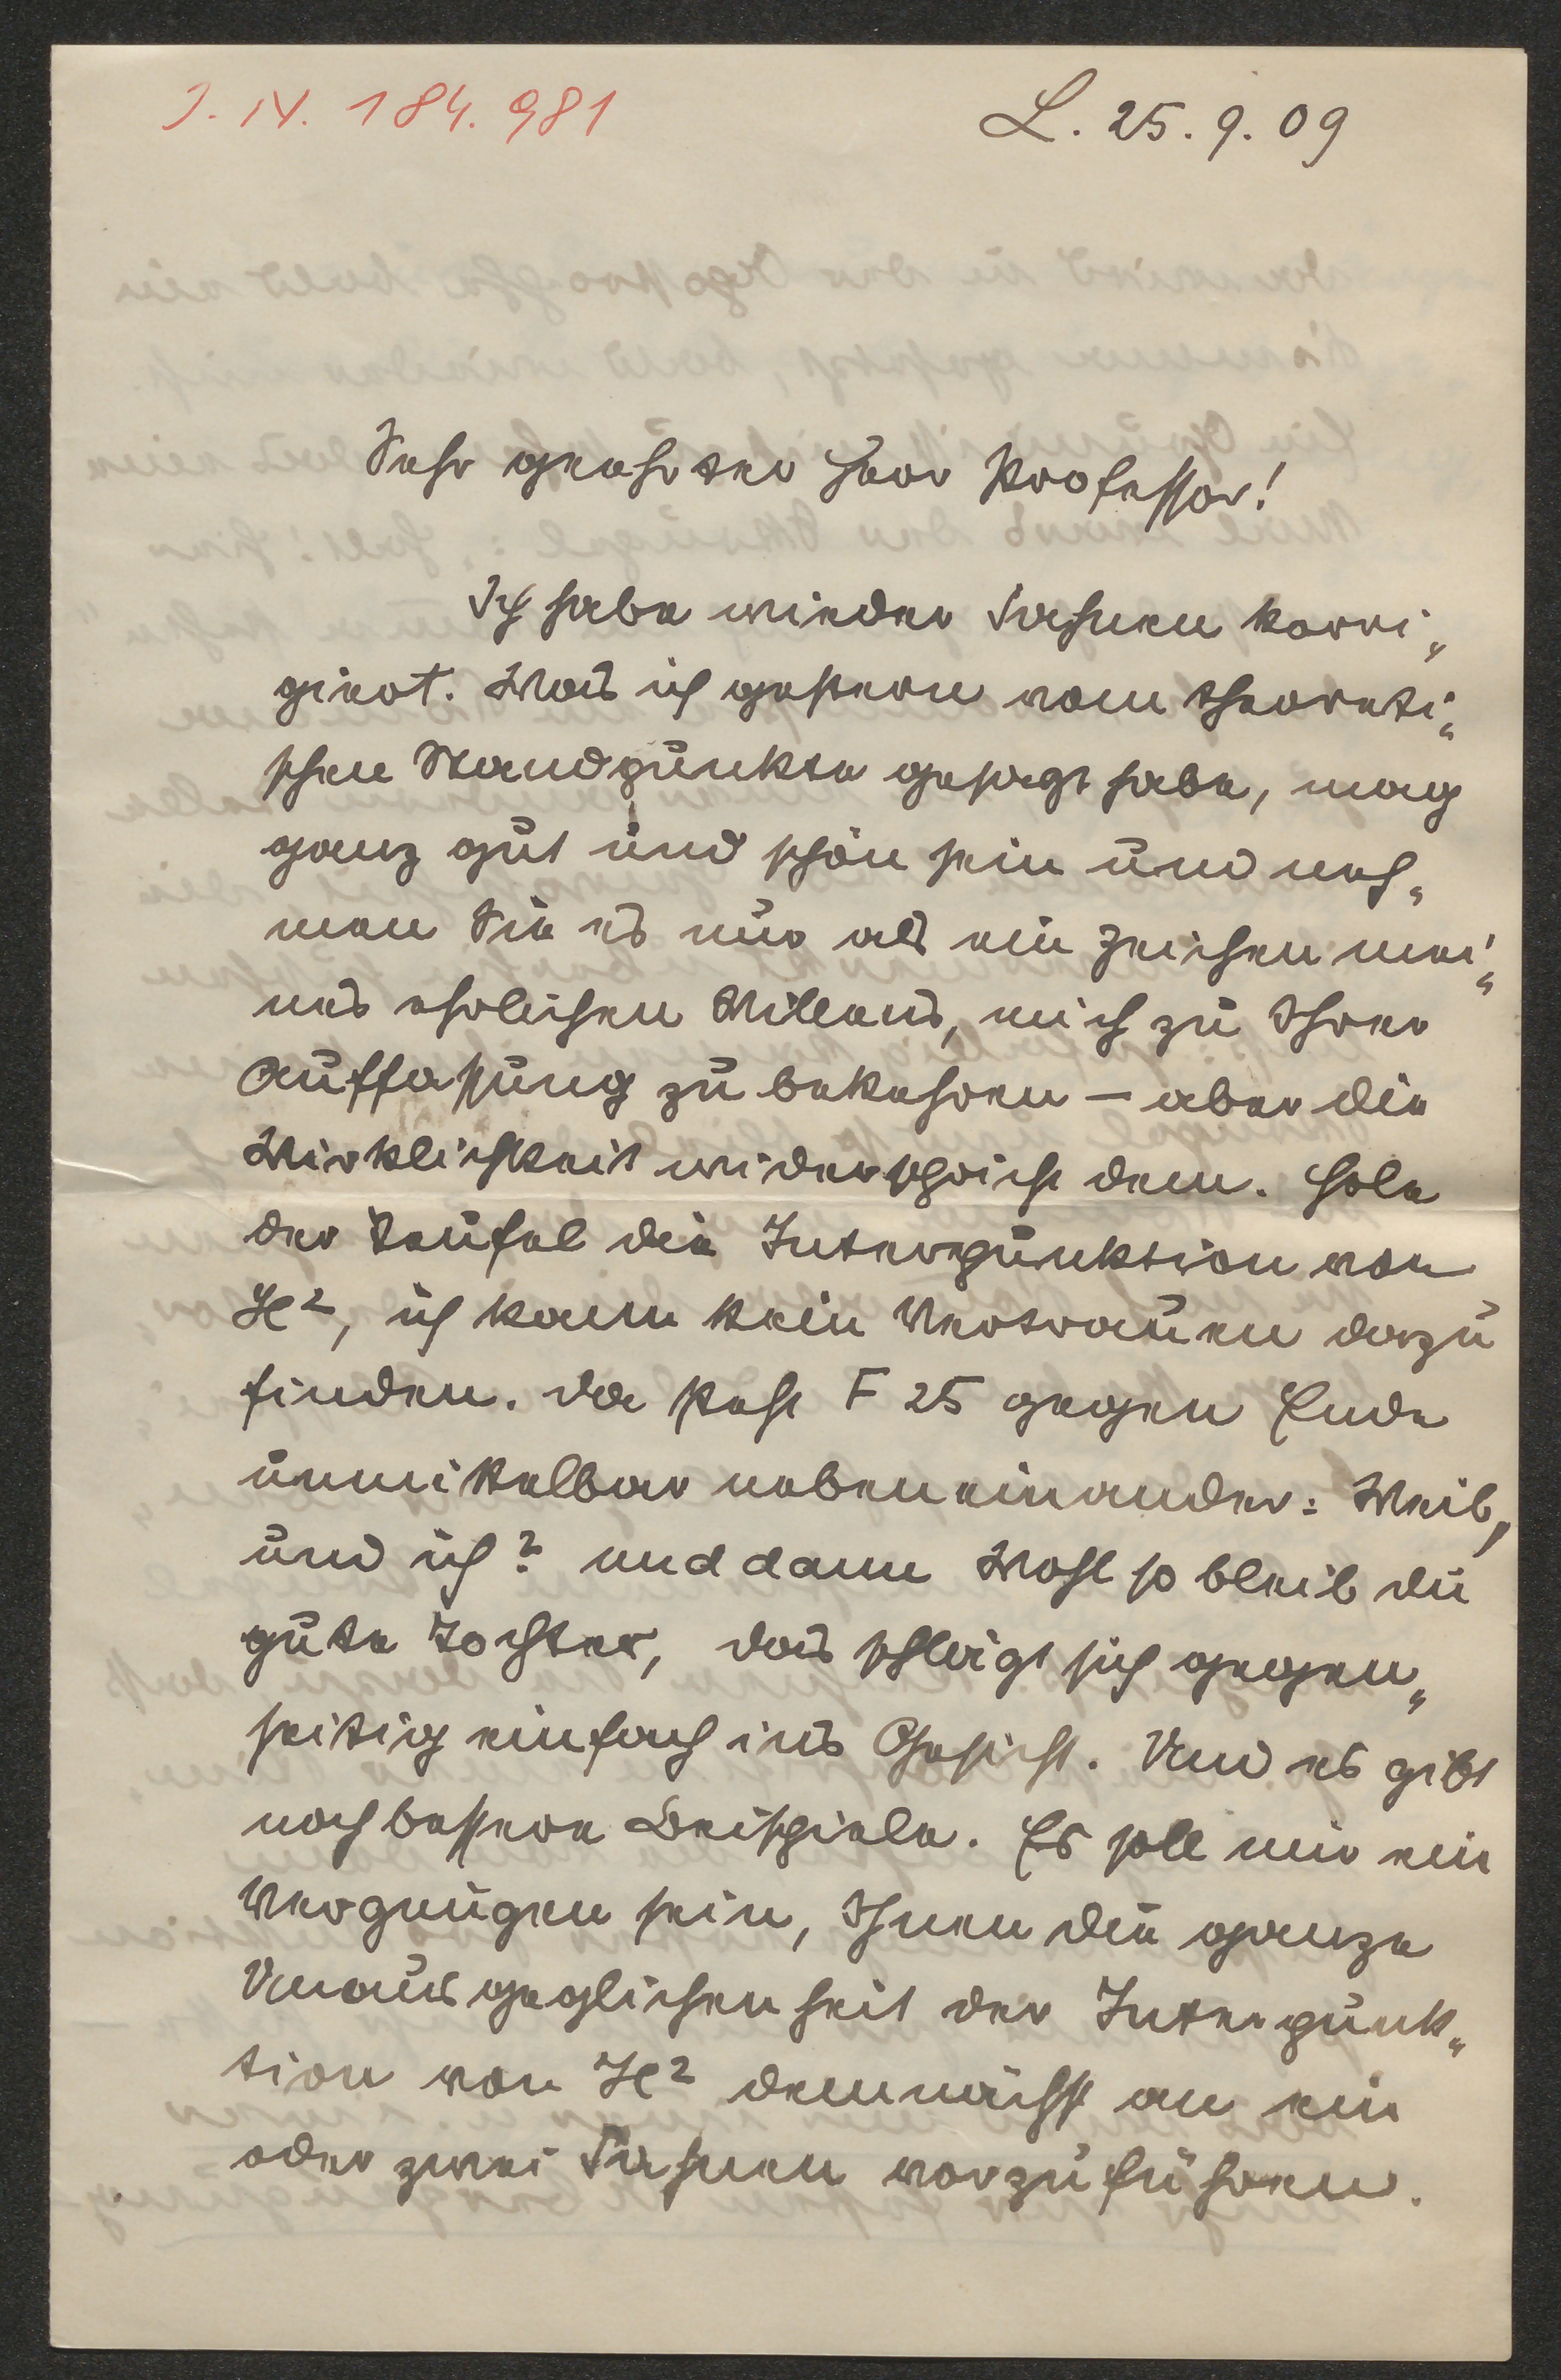 J. N. 184.981
L. 25.9.09
Sehr geehrter Herr Professor!
Ich habe wieder Szenen korri„
giert. Was ich gestern vom theoreti„
schen Standpunkte gesagt habe, mag
ganz gut und schön sein und neh„
men Sie es nur als ein Zeichen mei„
nes ehrlichen Willens, mich zu Ihrer
Auffassung zu bekehren – aber die
Wirklichkeit widerspricht dem. Hole
der Teufel die Interpunktion von
H², ich kann kein Vertrauen dazu
finden. Da steht F 25 gegen Ende
unmittelbar nebeneinander: Weib,
und ich? und dann Wohl so bleib du
gute Tochter, das schlägt sich gegen„
seitig einfach ins Gesicht. Und es gibt
noch bessere Beispiele. Es soll mir ein
Vergnügen sein, Ihnen die ganze
Unausgeglichenheit der Interpunk„
tion von H² demnächst an ein
oder zwei Szenen vorzuführen.